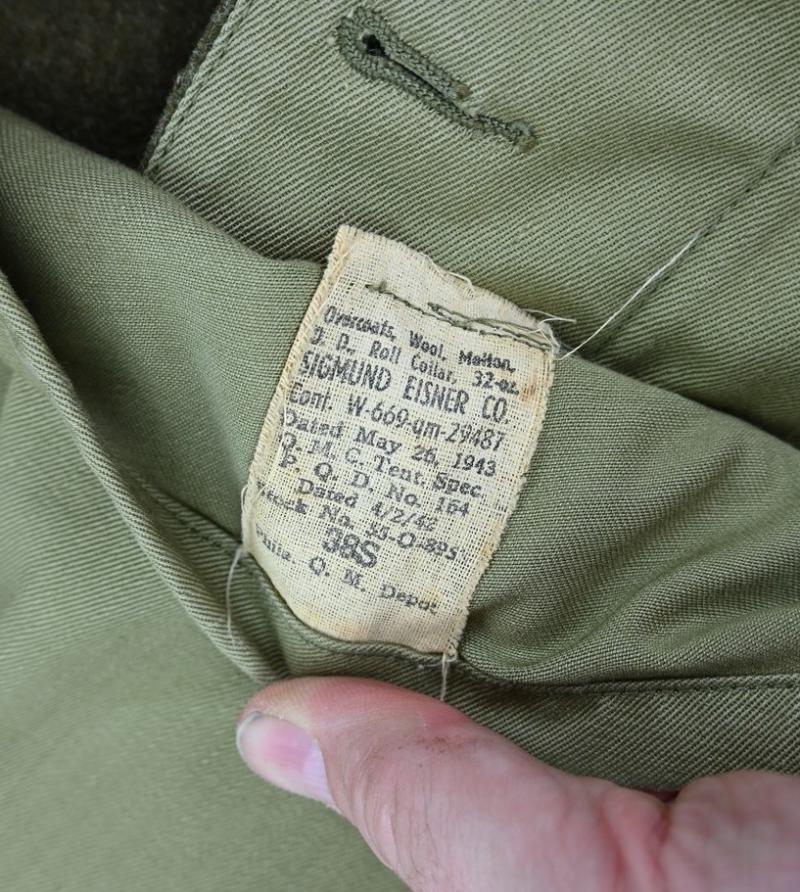 Overcoats, Wool, Melton,
J. D., Roll Collar, 32-oz.
SIGMUND EISNER CO.
Cont. W-669-qm-29487
Dated May 26, 1943
Q. M. C. Tent. Spec.
P. Q. D. No. 164
Dated 4/2/42
Stock No. 55-O-895
38S
Phila. Q. M. Depot